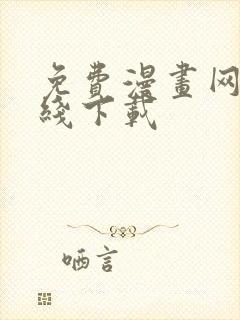 免費漫畫网
綫下載
哂言